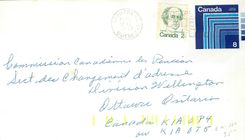 Canada
2
Canada
8
Commission Canadienne des Pension
Sect. des Changement d'adresse
Division Wellington
Ottawa Ontario
Canada K1A 0P4
ou K1A 0T5